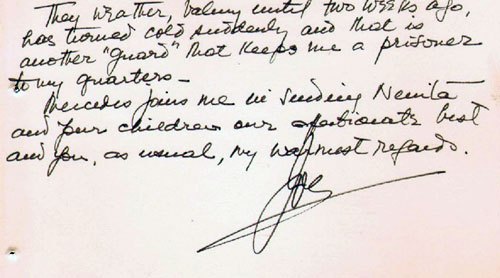 They weather, balmy until two weeks ago,
has turned cold suddenly and that is
another "guard" that keeps me a prisoner
to my quarters —
Mercedes joins me in sending Nenita
and your children our affectionate best
and you, as usual, my warmest regards.
Joe